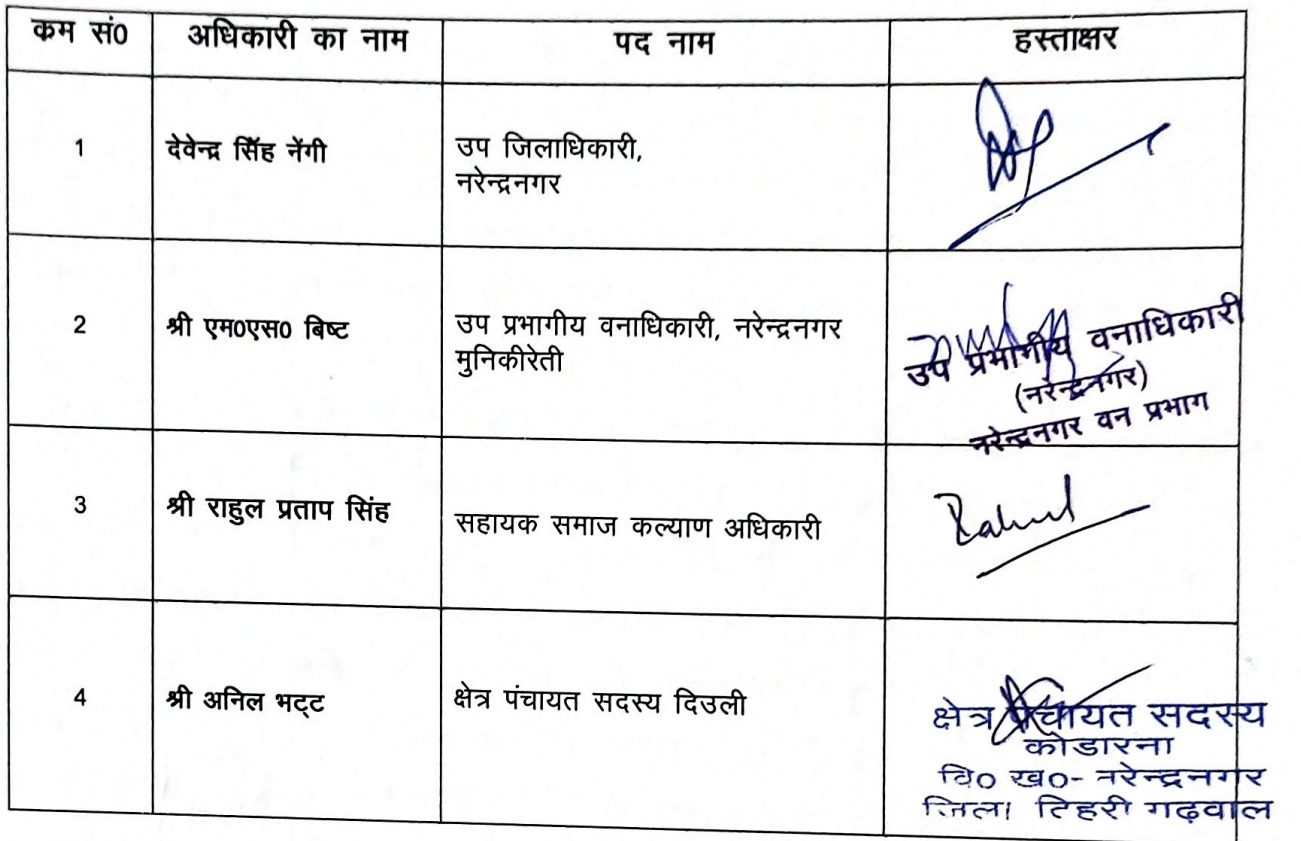 कम सं0 अधिकारी का नाम पद नाम हस्ताक्षर
1 देवेन्द्र सिंह नेंगी उप जिलाधिकारी,
नरेन्द्रनगर
2 श्री एम0एस0 बिष्ट उप प्रभागीय वनाधिकारी, नरेन्द्रनगर
मुनिकीरेती
उप प्रभागीय वनाधिकारी
(नरेन्द्रनगर)
नरेन्द्रनगर वन प्रभाग
3 श्री राहुल प्रताप सिंह सहायक समाज कल्याण अधिकारी Rahul
4 श्री अनिल भट्ट क्षेत्र पंचायत सदस्य दिउली
क्षेत्र पंचायत सदस्य
कोडारना
वि0 ख0- नरेन्द्रनगर
जिला टिहरी गढ़वाल